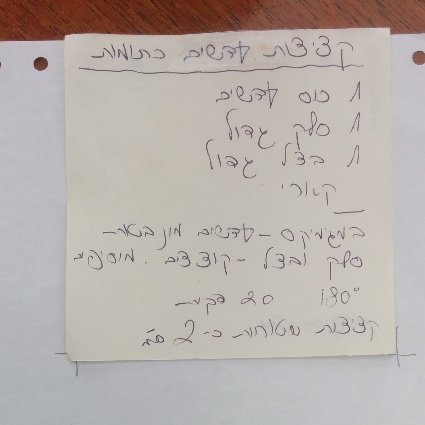 קציצות עדשים כתומות
1 כוס עדשים
1 סלק גדול
1 בצל גדול
קארי
במגימיקס - עדשים מונבטות
סלק ובצל - קוצצים. מוסיפים
180° 20 דקות
קציצות שטוחות כ-2 ס"מ